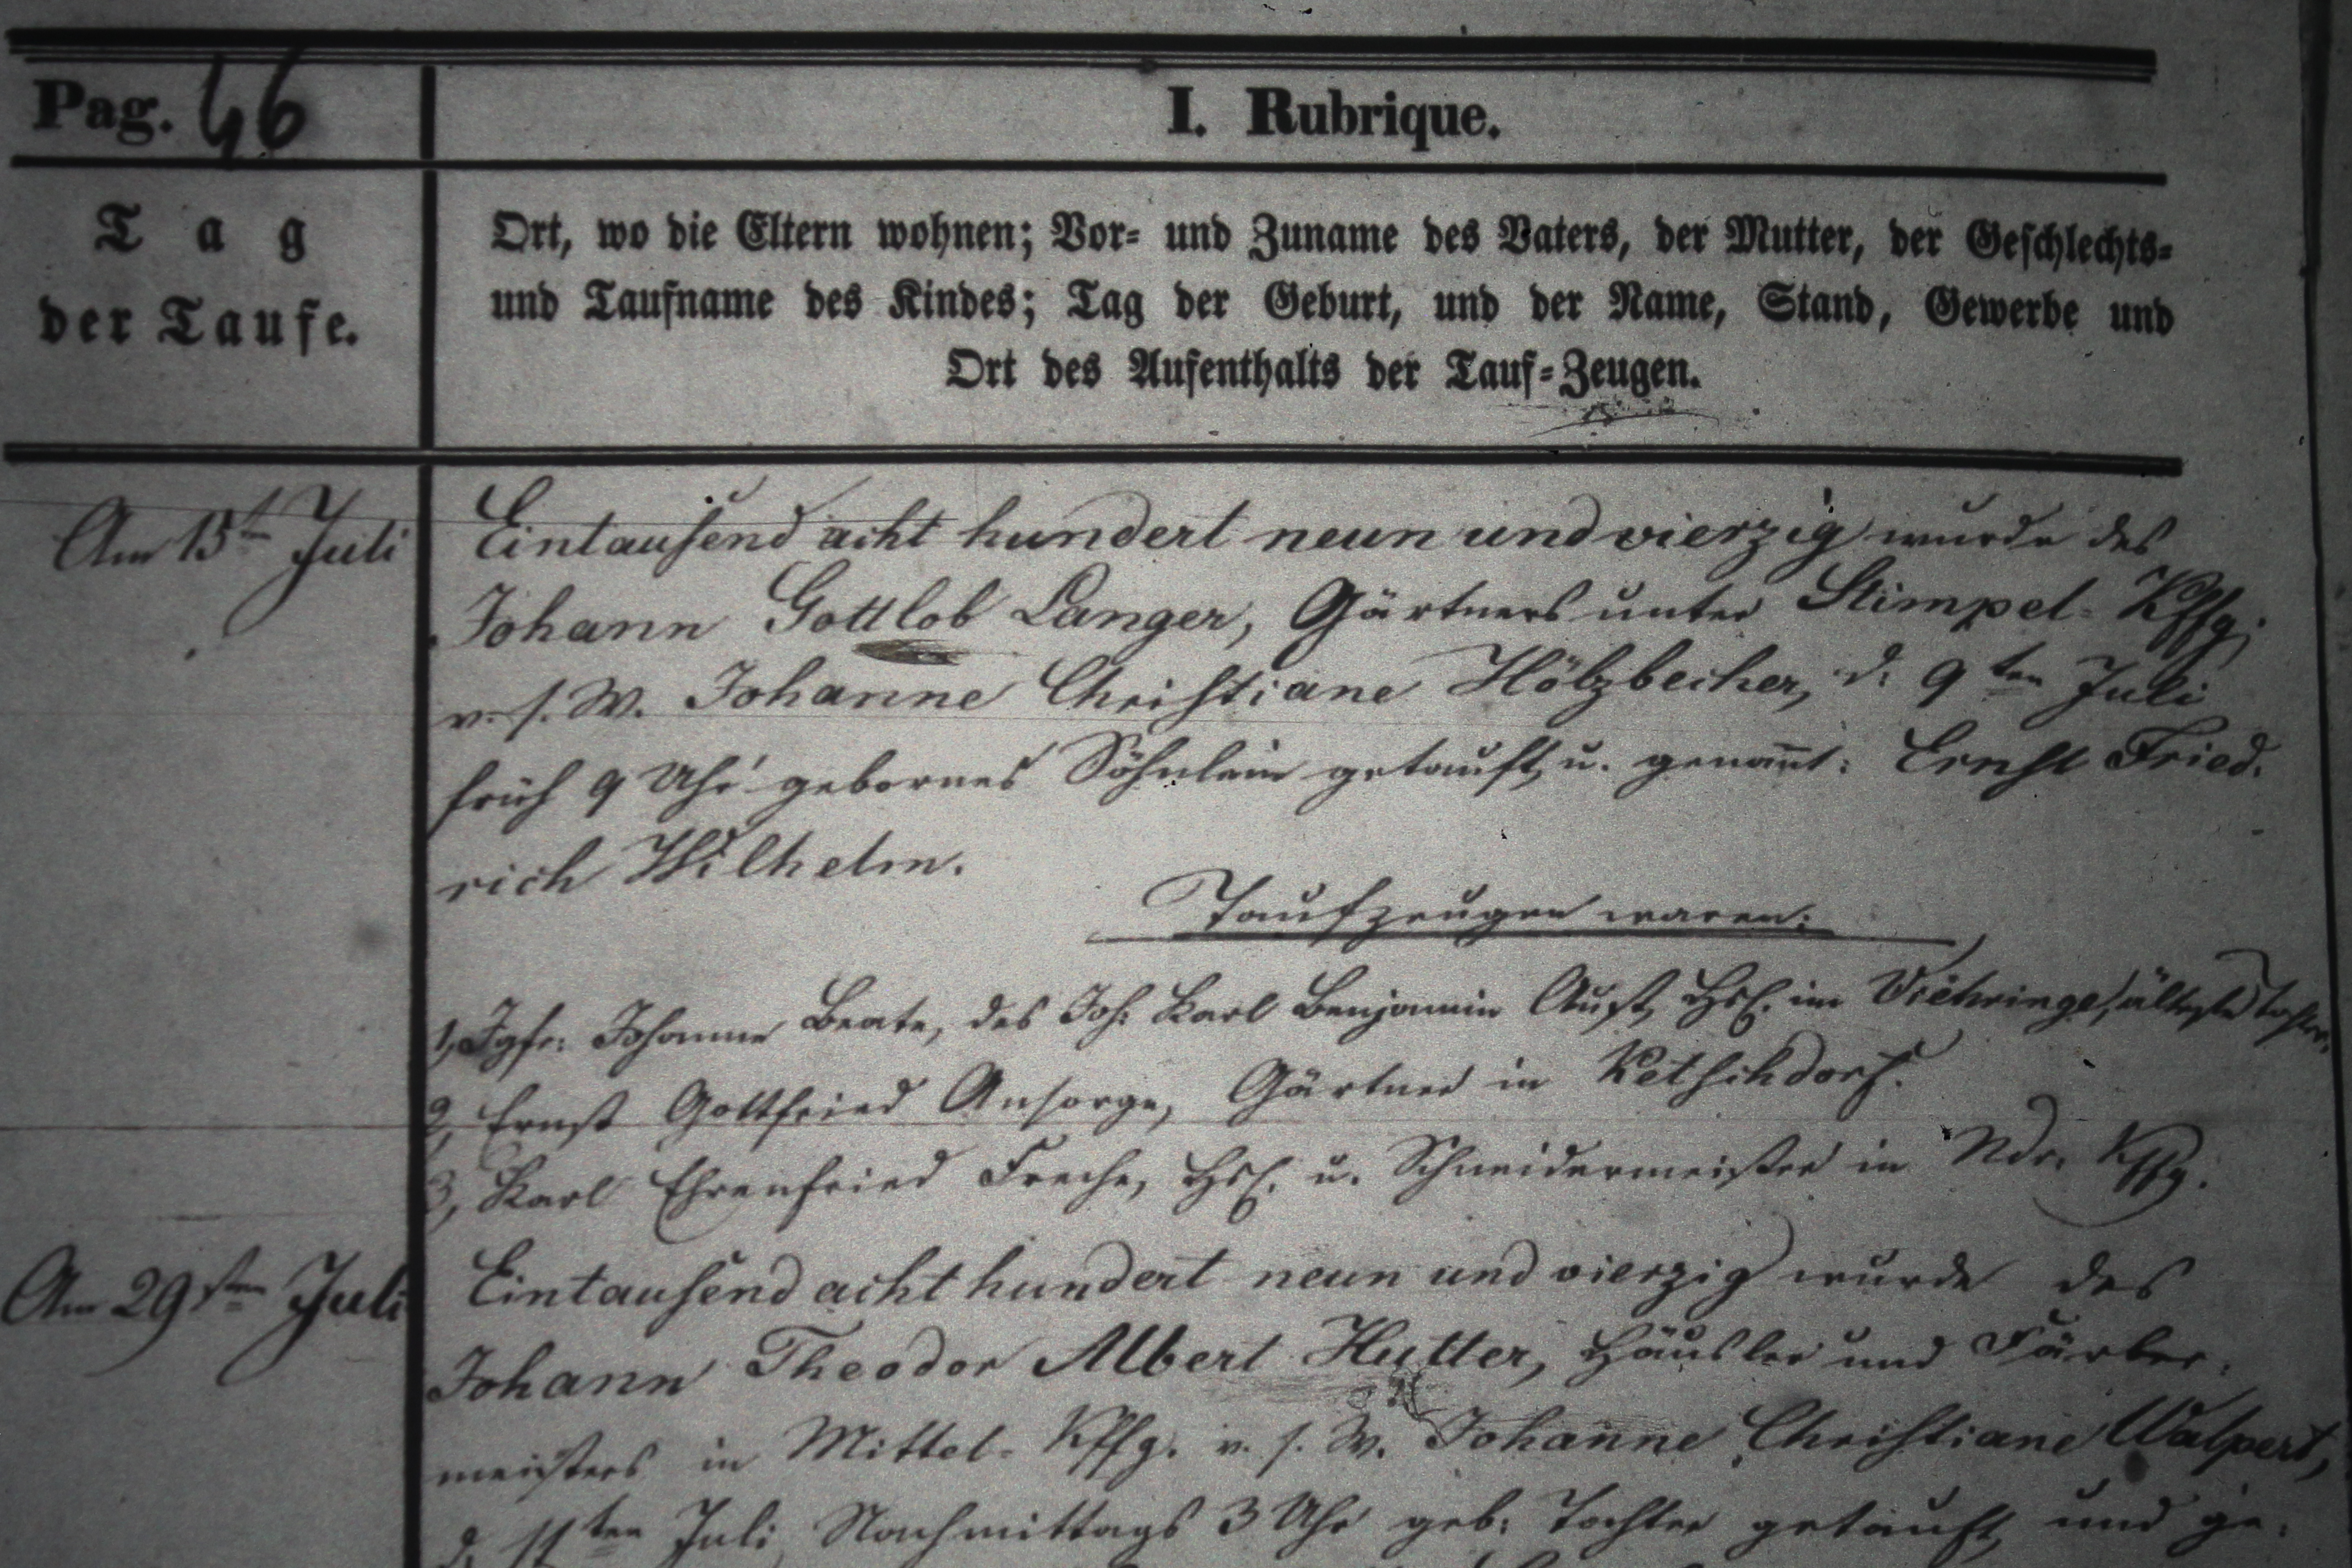 Pag. 46
I. Rubrique.
Tag
der Taufe.
Ort, wo die Eltern wohnen; Vor- und Zuname des Vaters, der Mutter, der Geschlechts-
und Taufname des Kindes; Tag der Geburt, und der Name, Stand, Gewerbe und
Ort des Aufenthalts der Tauf-Zeugen.
Am 15ten Juli
Eintausend acht hundert neun und vierzig wurde des
Johann Gottlob Langer, Gärtners unter Stimpel-Kffg.
v. s. W. Johanne Christiane Hölzbecher, d. 9ten Juli
früh 9 Uhr gebornes Söhnlein getauft u. genannt: Ernst Fried.
rich Wilhelm.
Taufzeugen waren:
1, Jgfr: Johanne Beate, des Joh: Karl Benjamin Aust, Hsl. im Viehringe, älteste Tochter.
2, Ernst Gottfried Ansorge, Gärtner in Ketschdorf.
3, Karl Ehrenfried Freche, Hsl. u. Schneidermeister in Ndr. Kffg.
Am 29sten Juli
Eintausend acht hundert neun und vierzig wurde des
Johann Theodor Albert Hutter, Häusler und Färber-
meisters in Mittel-Kffg. v. s. W. Johanne Christiane Walpert,
d. 11ten Juli Nachmittags 3 Uhr geb: Tochter getauft und ge-